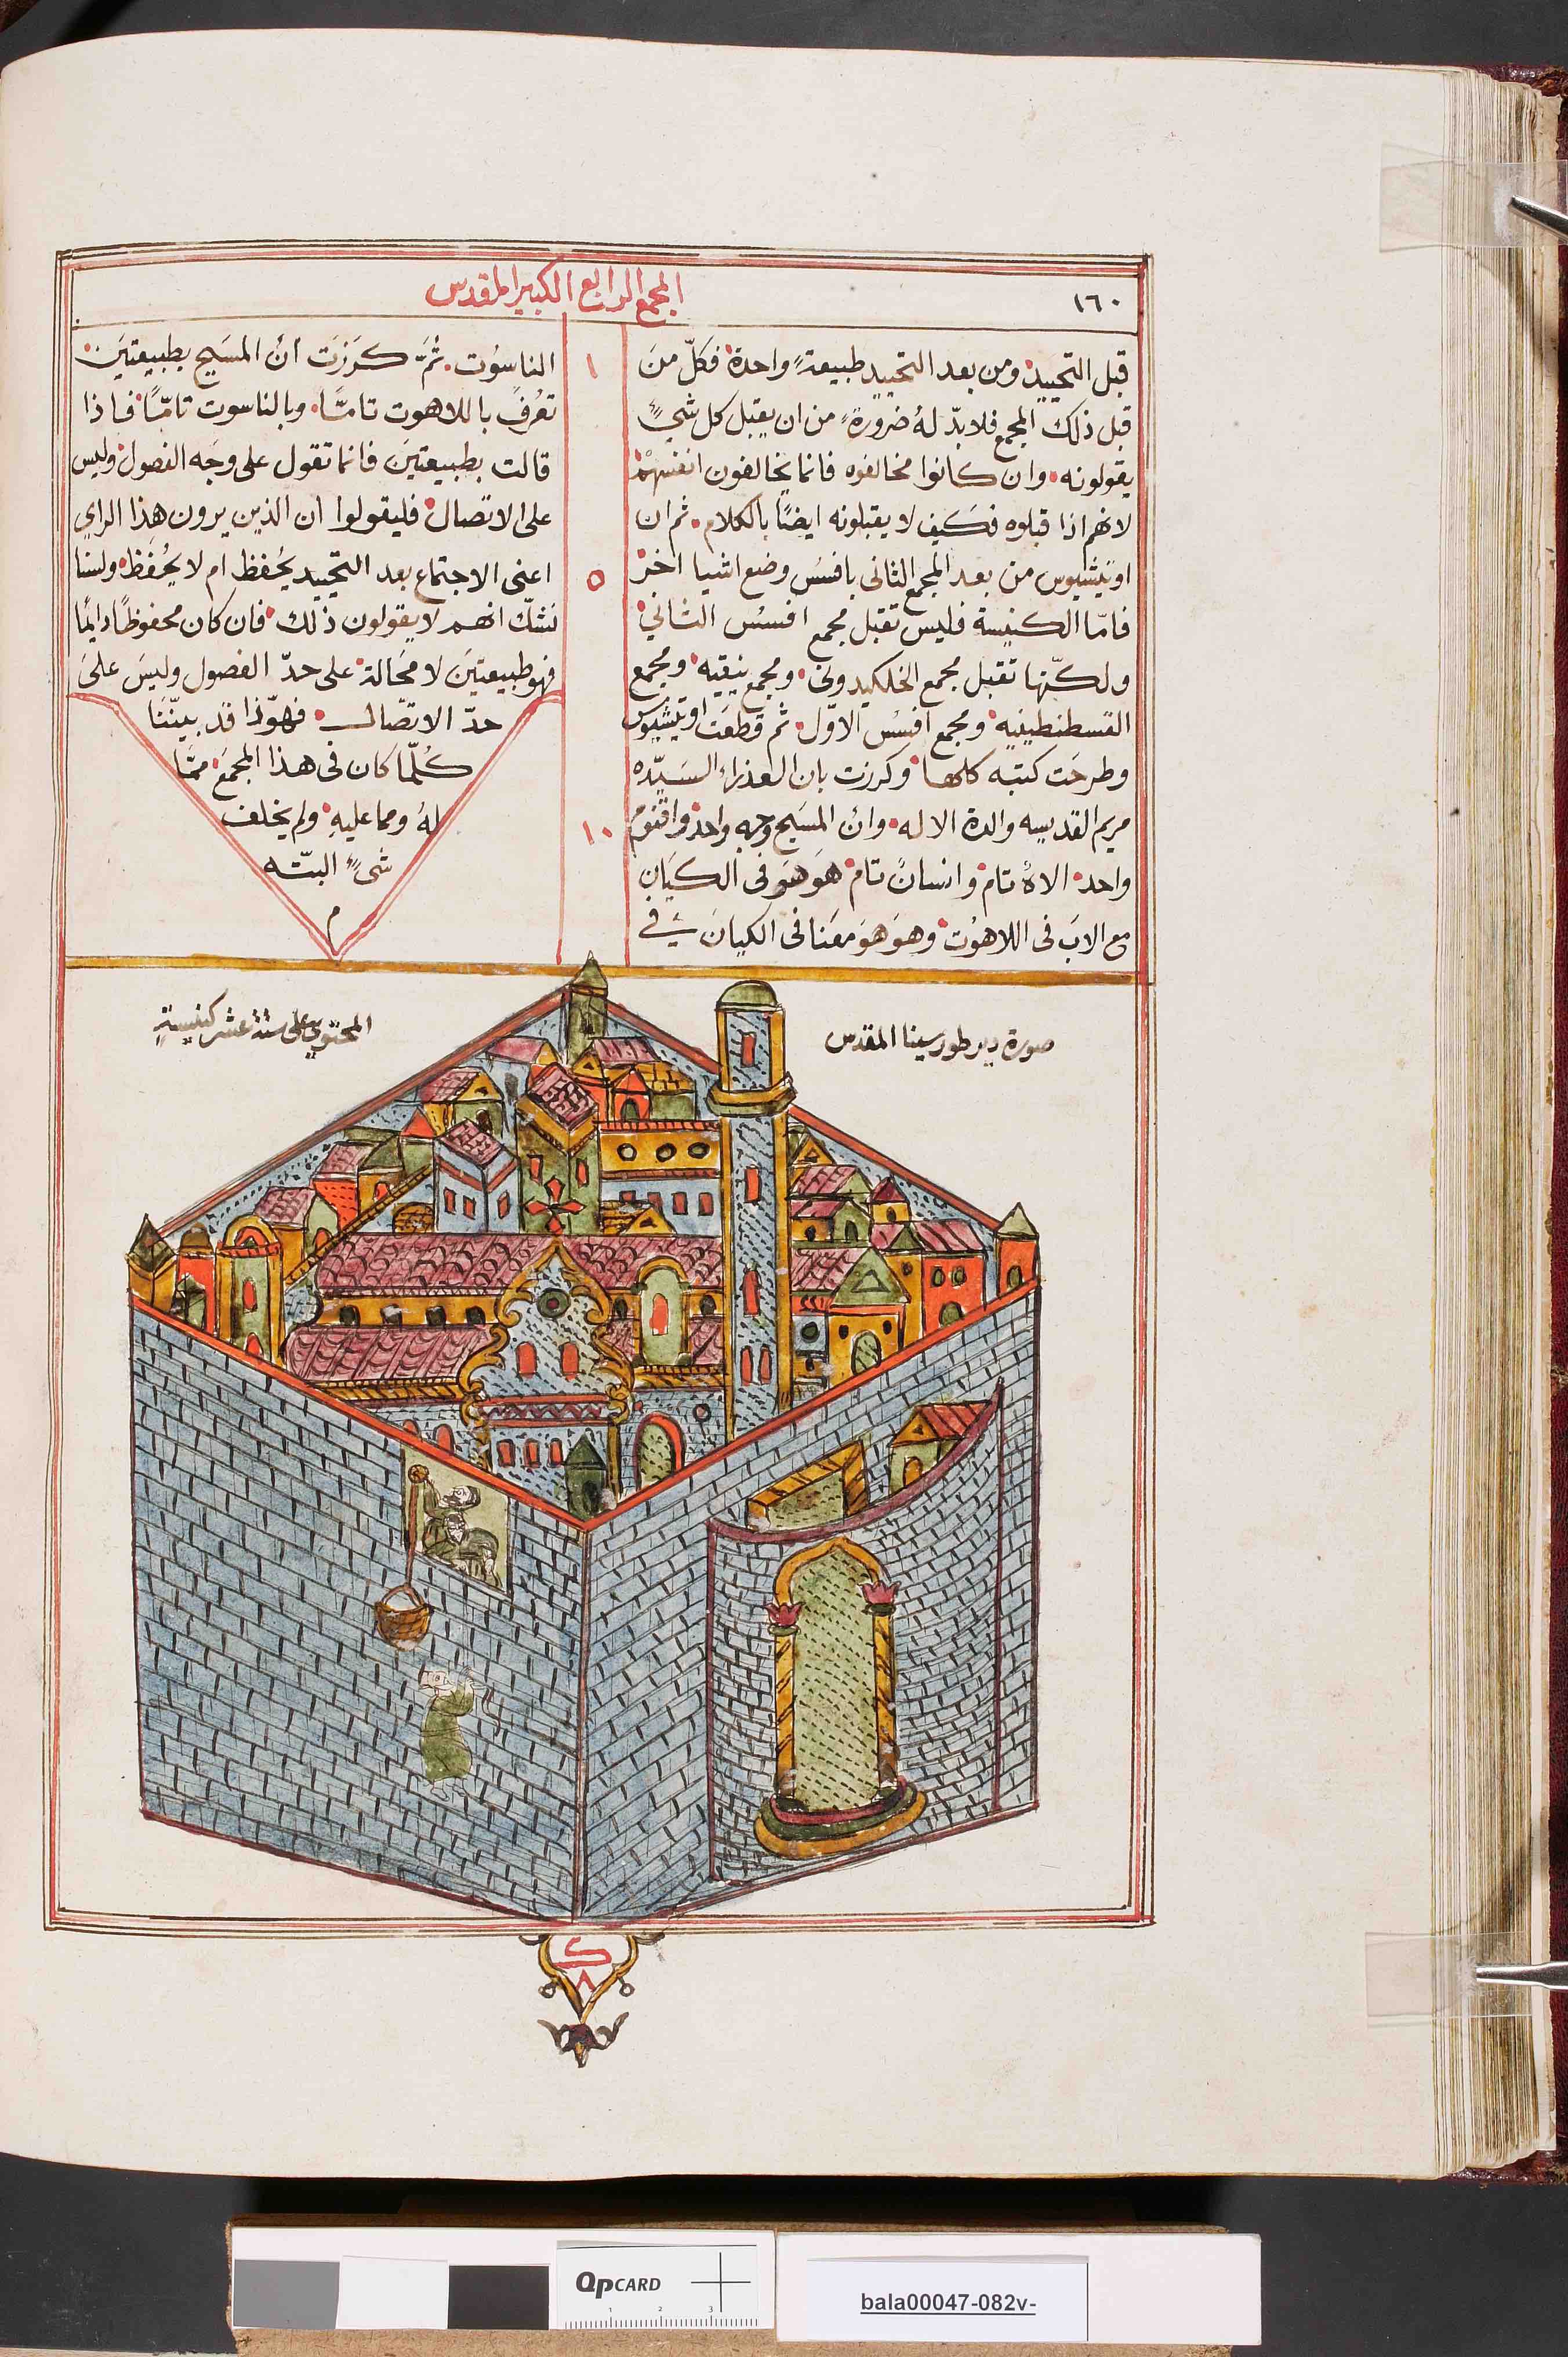 ١٦٠
المجمع الرابع الكبير المقدس
قبل التجسيد ومن بعد التجسيد طبيعةٍ واحدة فكلّ منَ
قبل ذلك المجمع فلا بدّ لهُ ضرورةٍ من ان يقبل كل شيءٍ
يقولونه وان كانوا مخالفوه فانما يخالفون انفسهمْ
لانهم اذا قبلوه فكَيف لا يقبلونه ايضًا بالكلام ثم ان
اوتيشيوس من بعد المجمع الثانى بافسس وضع اشيا اخرْ
فامّا الكنيسة فليس تقبل مجمع افسسُ الثاني
ولكنّها تقبل مجمع الخلكيدونى ومجمع نيقيه ومجمع
القسطنطينيه ومجمع افسُس الاوّل ثم قطعَت اوتيشيوس
وطرحَت كتبه كلها وكرزت بان العذراء السيّده
مريم القديسه والدة الاله وانُ المسَيح وجهٍ واحدْ واقنومٍ
واحد الاهُ تام وانسانُ تام هَو هَو فى الكيَان
مع الابَ فى اللاهوُت وهوَ هوَ معَنا فى الكيانَ في
١
٥
١٠
الناسوُت ثمَّ كرَزَت انُ المسَيح بطبيعتيَن
تعُرفَ باللاهوت تامًّا وبالناسوت تامًّا فاذا
قالت بطبيعتيَن فانما تقول على وجَه الفصول وليس
على الاتصال فليقولوا ان الذين يرون هذا الراي
اعنى الاجتماع بعد التجسيد يحُفظ ام لا يُحفَظ ولسنا
نشكّ انهم لا يقولون ذلك فان كان محفوظًا دايمًا
فهو طبيعتيَن لا محَالة على حدّ الفصول وليسَ علىَ
حدّ الاتصّال فهوّذا قد بيّنَنا
كُلّما كان فى هذا المجمَع ممَّا
لهُ ومما عليهِ ولم يخلف
شىءٍ البتّه
م
صورة دير طور سينا المقدس
المحتوي على ستة عشر كنيسةٍ
ك
٨
QpCARD
1 2 3
bala00047-082v-